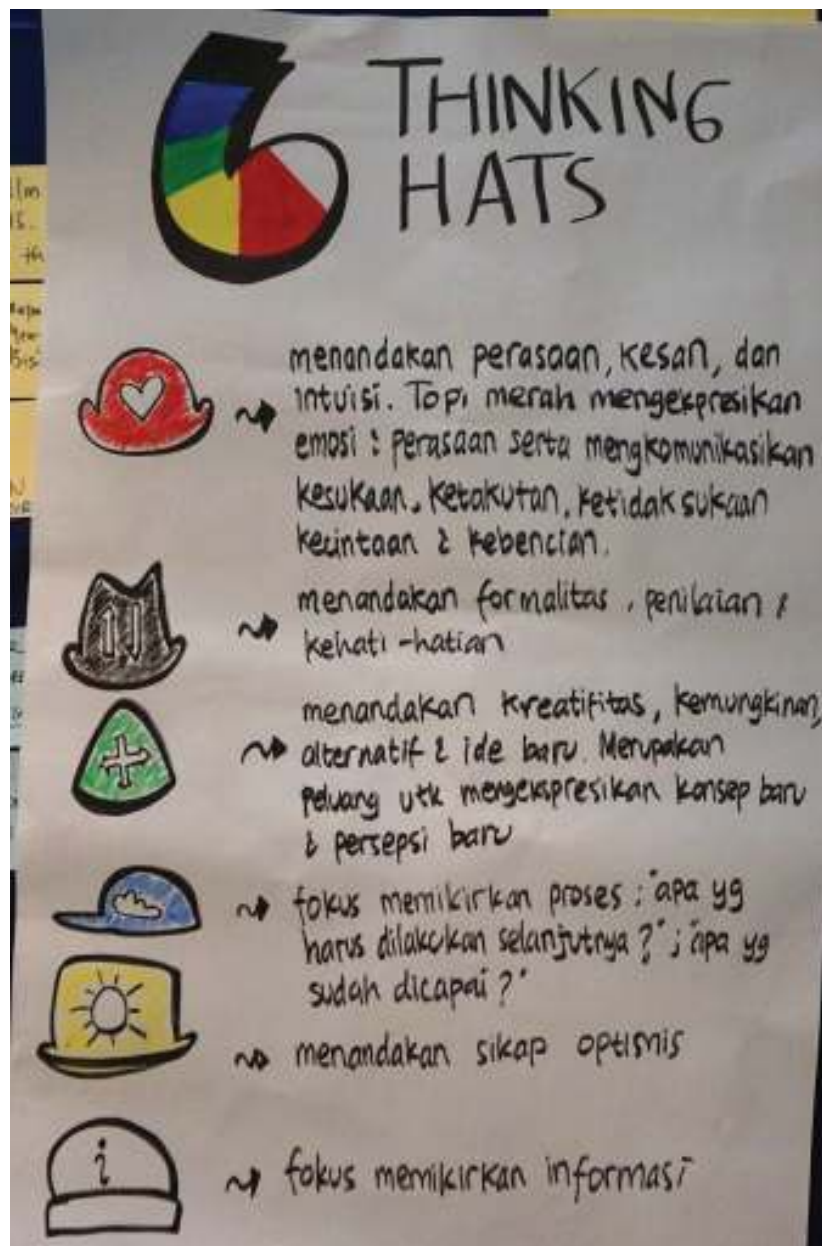 6 THINKING
HATS
menandakan perasaan, kesan, dan
intuisi. Topi merah mengekspresikan
emosi & perasaan serta mengkomunikasikan
kesukaan, ketakutan, ketidak sukaan
kecintaan & kebencian.
menandakan formalitas, penilaian &
kehati-hatian
menandakan kreatifitas, kemungkinan,
alternatif & ide baru. Merupakan
peluang utk mengekspresikan konsep baru
& persepsi baru
fokus memikirkan proses ; "apa yg
harus dilakukan selanjutnya ?" ; "apa yg
sudah dicapai ?"
menandakan sikap optimis
i
fokus memikirkan informasi